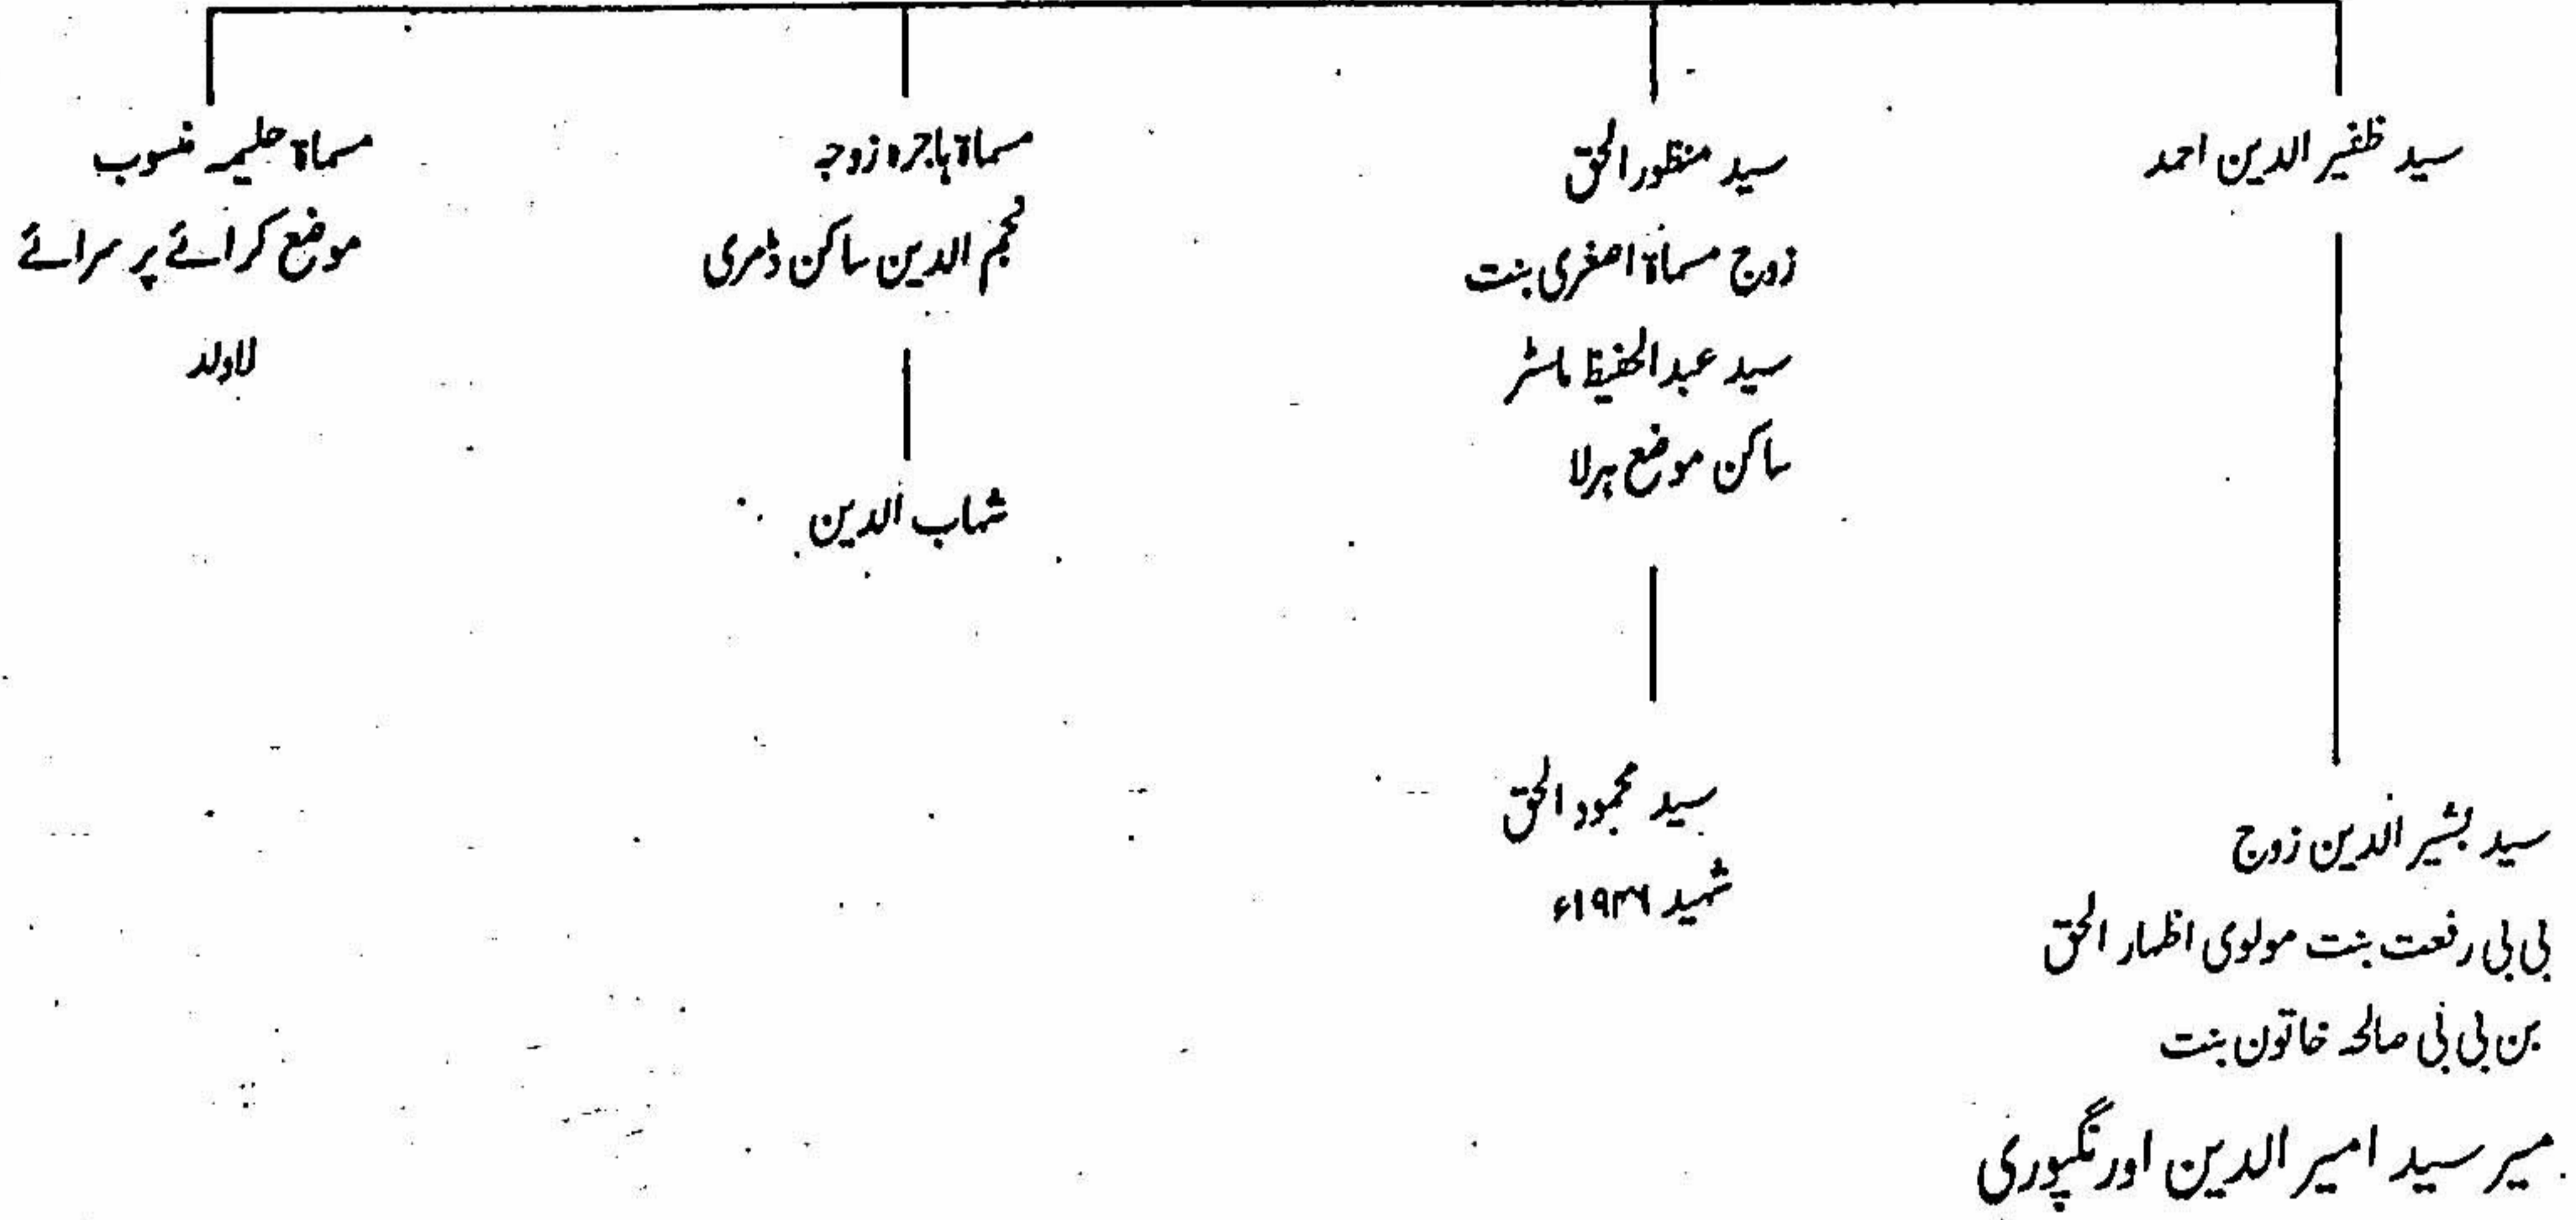 سید ظفیر الدین احمد
سید بشیر الدین زوج
بی بی رفعت بنت مولوی اظہار الحق
بن بی بی صالحہ خاتون بنت
میر سید امیر الدین اورنگپوری
سید منظور الحق
زوج مسماۃ اصغری بنت
سید عبدالحفیظ ماسٹر
ساکن موضع ہرلا
سید محمود الحق
شہید ۱۹۴۶ء
مسماۃ ہاجرہ زوجہ
نجم الدین ساکن ڈمری
شہاب الدین
مسماۃ حلیمہ منسوب
موضع کرائے پر سرائے
لاولد